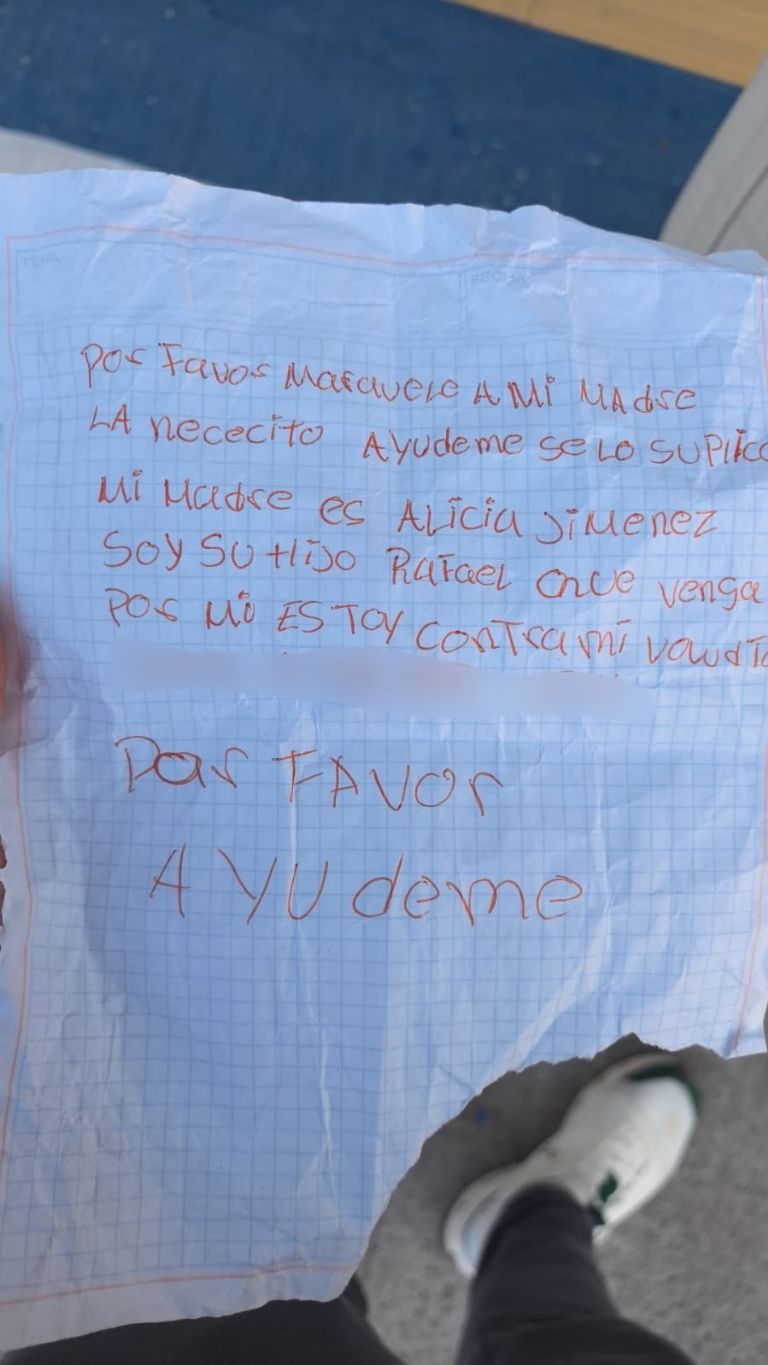 TEMA
FECHA
Por Favor Marquele A Mi Madre
LA nececito Ayudeme se Lo suplico
Mi Madre es Alicia Jimenez
Soy su Hijo Rafael que venga
Por Mi ESTOY contra mi
Por FAVOR
AYUdeme